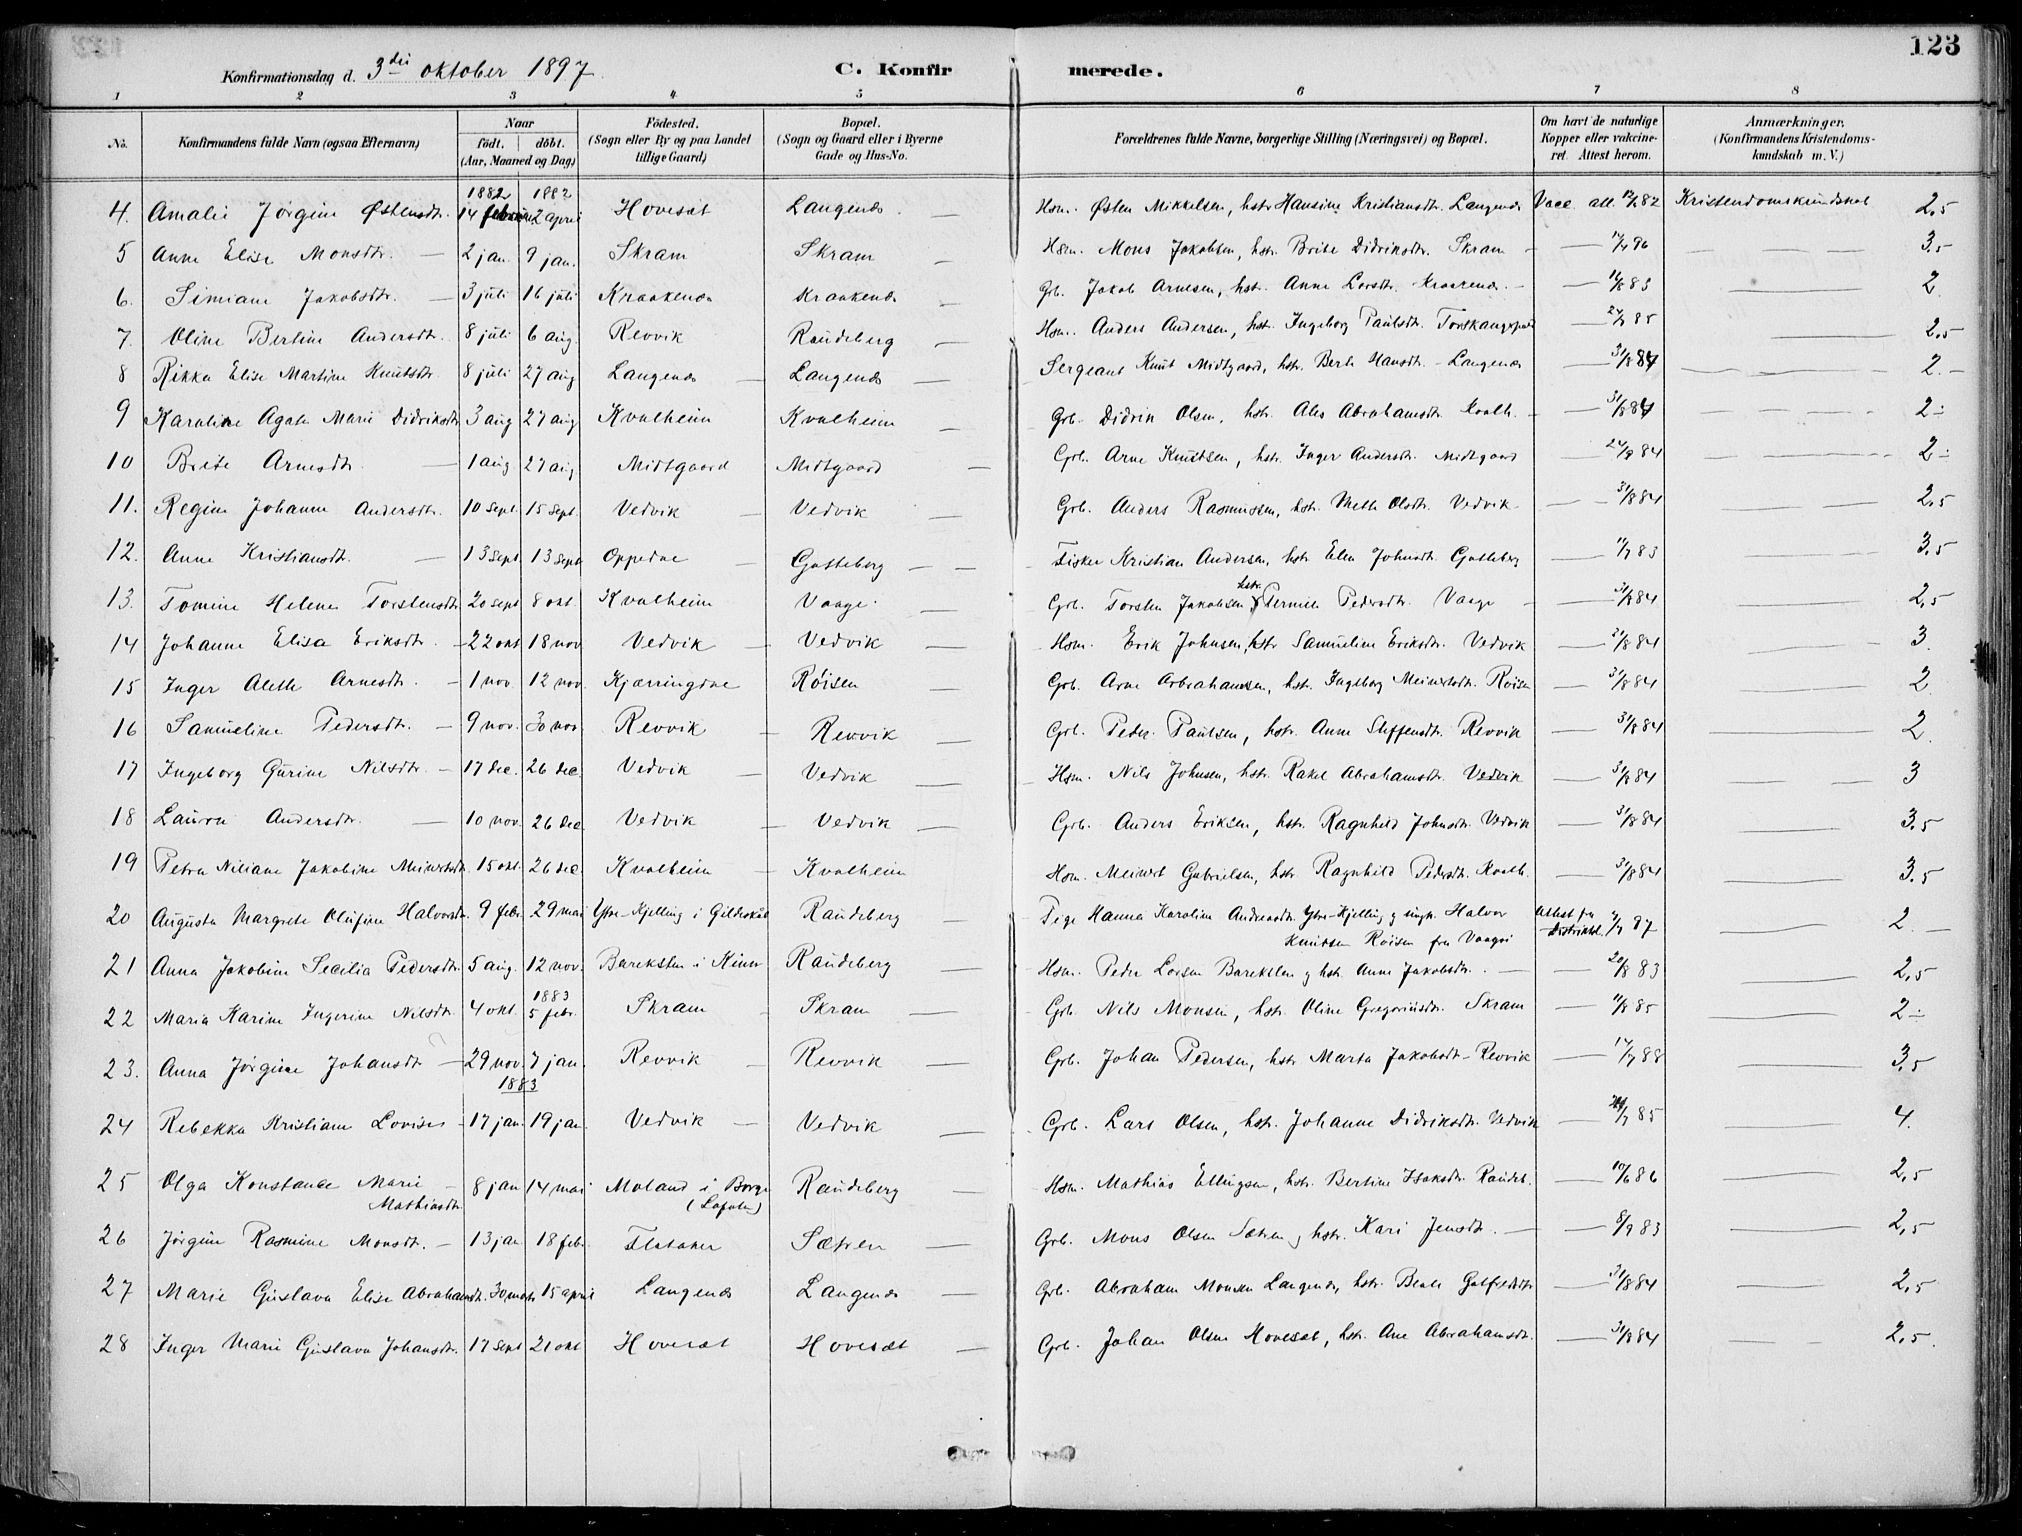 123
Konfirmationsdag d. 3die oktober 1897. C. Konfirmerede.
1 2 3 4 5 6 7 8
No. Konfirmandens fulde Navn (ogsaa Efternavn) Naar født. døbt. (Aar, Maaned og Dag) Fødested. (Sogn eller By og paa Landet tillige Gaard) Bopæl. (Sogn og Gaard eller i Byerne Gade og Hus-No. Forældrenes fulde Navne, borgerlige Stilling (Næringsvei) og Bopæl. Om havt de naturlige Kopper eller vakcineret. Attest herom. Anmærkninger. (Konfirmandens Kristendomskundskab m. V.)
1882 1882
4. Amalie Jørgine Østensdtr. 14 februar 2 april Hovesæt Langenæs Hsm. Østen Mikkelsen, hstr Hansine Kristiansdtr. Langenæs Vacc. att. Kristendomskundskab 2,5
5 Anne Elise Monsdtr. 2 jan. 9 jan. Skram Skram Hsm. Mons Jakobsen, hstr. Brite Didriksdtr. Skram 3.5
6. Simiane Jakobsdtr. 3 juli 16 juli Kraakenæs Kraakenæs Grb. Jakob Arnesen, hstr. Anne Larsdtr. Kraakenæs 2.
7. Oline Bertine Andersdtr. 8 juli 6 aug. Revvik Raudeberg Hsm. Anders Andersen, hstr. Ingeborg Paulsdtr. 2,5
8 Rikka Elise Martine Knutsdtr. 8 juli 27 aug Langenæs Langenæs Sergeant Knut Midtgaard, hstr. Berte Hansdtr. - Langenæs 31/8 84 2.-
9 Karoline Agate Marie Didriksdtr 3 aug 27 aug Kvalheim Kvalheim Grb. Didrik Olsen, hstr. Ales Abrahamsdtr. Kvalh. 31/8 84 2-
10 Brite Arnesdtr. 1 aug 27 aug Midtgaard Midtgaard Grb. Arne Knutsen, hstr. Inger Andersdtr. Midtgaard 2-
11. Regine Johanne Andersdtr. 10 sept. 15 sept. Vedvik Vedvik Grb. Anders Rasmussen, hstr. Mette Olsdtr. Vedvik 31/8 84 2,5
12. Anne Kristiansdtr. 13 sept 13 sept Oppedal Gotteberg Fisker Kristian Andersen, hstr. Elen Johnsdtr. Gotteberg 3.5
13. Tomine Helene Torstensdtr 20 sept 8 okt. Kvalheim Vaage. Grb. Torsten Jakobsen, hstr. Pernille Pedersdtr. Vaage 31/8 84 2,5
14 Johanne Elisa Eriksdtr. 22 okt 18 nov Vedvik Vedvik Hsm. Erik Johnsen, hstr Samueline Eriksdtr. Vedvik 31/8 84 3.
15 Inger Aleth Arnesdtr. 1 nov. 12 nov. Røisen Grb. Arne Arbrahamsen, hstr. Ingeborg Meinertsdtr. Røisen 31/8 84 2.
16 Samueline Pedersdtr. 9 nov. 30 nov. Revvik Revvik Grb. Peder Paulsen, hstr. Anne Steffensdtr. Revvik 31/8 84 2.
17 Ingeborg Gurine Nilsdtr. 17 dec. 26 dec. Vedvik Vedvik Hsm. Nils Johnsen, hstr. Rakel Abrahamsdtr. Vedvik 31/8 84 3
18 Laura Andersdtr. 10 nov. 26 dec. Vedvik Vedvik Grb. Anders Eriksen, hstr. Ragnhild Johnsdtr. Vedvik 31/8 84 3.5
19 Petra Niliane Jakobine Meinertsdtr. 15 okt. 26 dec. Kvalheim Kvalheim Hsm. Meinert Gabrielsen, hstr. Ragnhild Pedersdtr. Kvalh. 31/8 84 3.5
20 Augusta Margrete Olufine Halvorsdtr. 9 febr. 29 mai Ytre-Kjelling i Gildeskaal Raudeberg Pige Hanna Karoline Andreasdtr. Ytre-Kjelling og ungk. Halvor Knudsen Røisen fra Vaagsø Attest fra 2.
21 Anna Jakobine Secilia Pedersdtr. 5 aug. 12 nov. Bareksten i Kinn Raudeberg Hsm. Peder Larsen Bareksten og hstr. Anne Jakobsdtr. 20/8 83 2,5
22 Maria Karine Ingerine Nilsdtr. 4 okt. 1883 5 febr. Skram Skram Grb. Nils Monsen, hstr. Oline Gregoriusdtr. Skram 2-
23. Anna Jørgine Johansdtr 29 nov. 7 jan. Revvik Revvik Grb. Johan Pedersen, hstr Marta Jakobsdtr - Revvik 3.5
1883
24 Rebekka Kristiane Lovise 17 jan. 19 jan. Vedvik Vedvik Grb. Lars Olsen, hstr. Johanne Didriksdtr. Vedvik 4.
25 Olga Konstanse Marie Mathiasdtr 8 jan 14 mai Moland i Borge (Lofoten) Raudeberg Hsm. Mathias Ellingsen, hstr. Bertine Isaksdtr. Raudeb. 10/6 86 2,5
26 Jørgine Rasmine Monsdtr. 13 jan. 18 febr. Flataker Sætren Grb. Mons Olsen Sætren, hstr. Kari Jensdtr. 8/9 83 2,5
27 Marie Gustava Elise Abrahamsdtr. 30 marts 15 april Langenæs Langenæs Grb. Abraham Monsen Langenæs, hstr. Beate 31/8 84 2,5
28 Inger Marie Gustava Johansdtr. 17 sept 21 okt Hovesæt Hovesæt Grb. Johan Olsen Hovesæt, hstr. Ane Abrahamsdtr. 31/8 84 2,5.